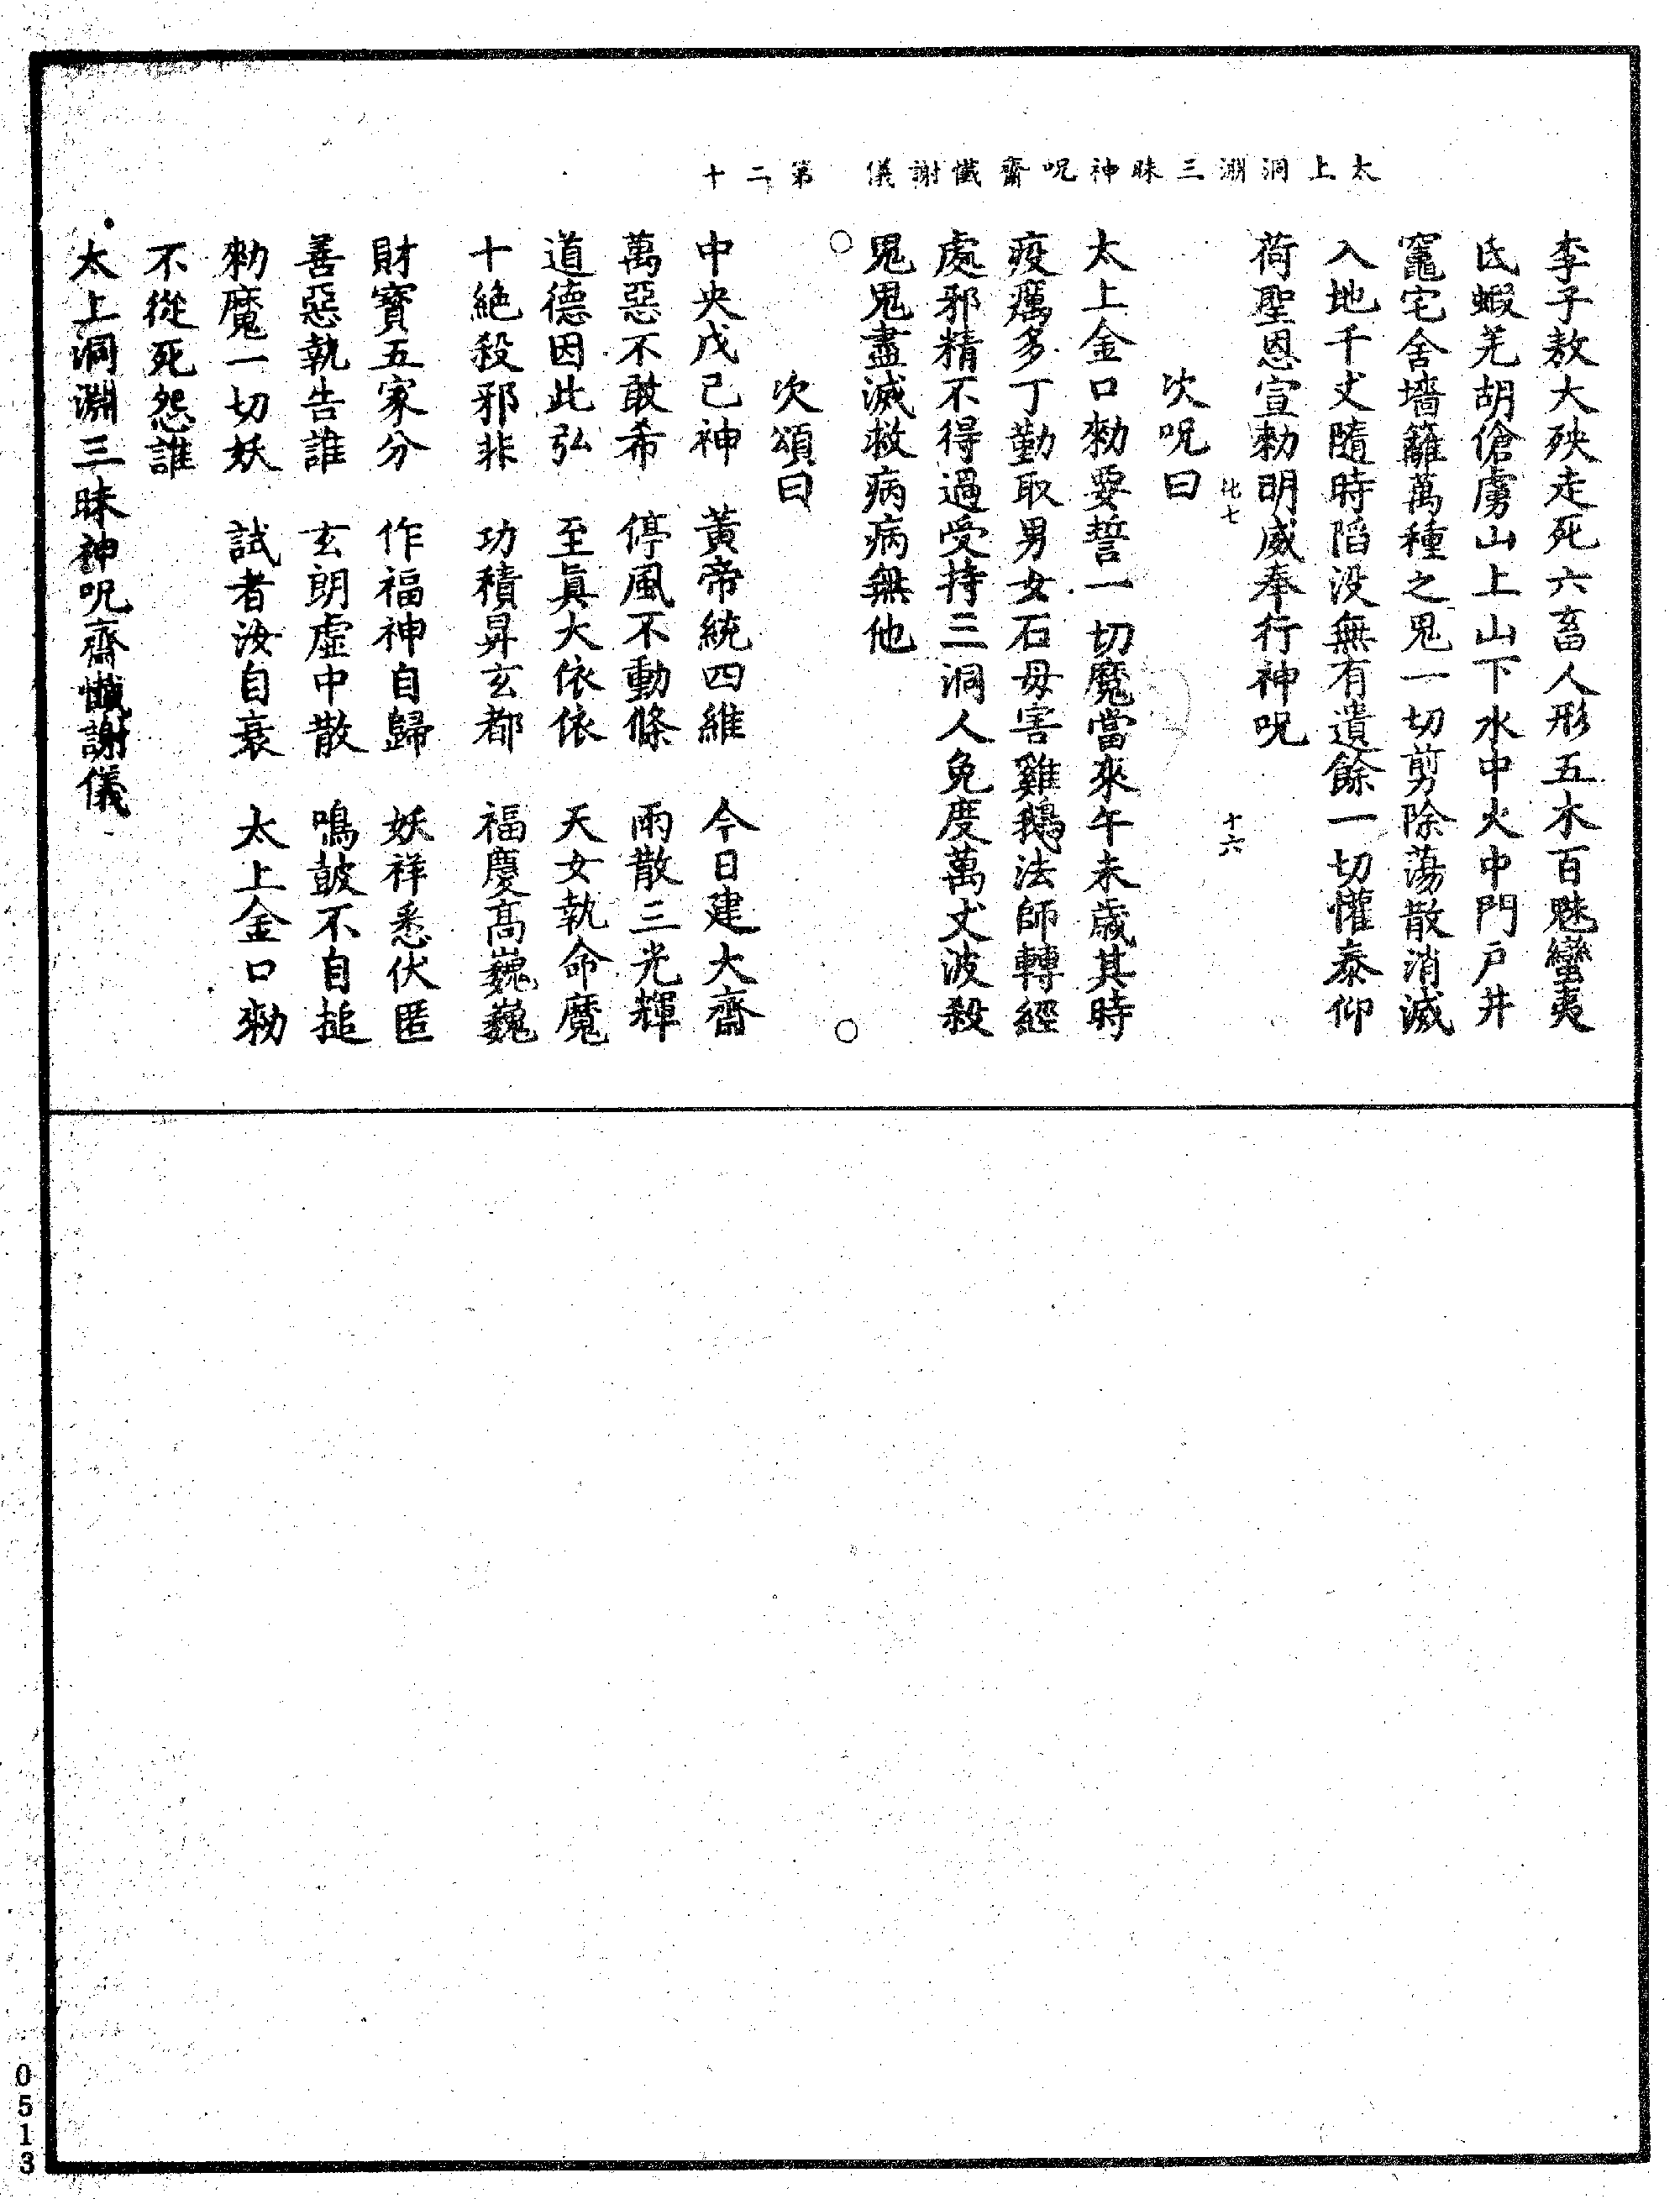 太上洞淵三昧神呪齋懺謝儀　第二十
李子敖大殃走死六畜人形五木百魅蠻夷
氐蝦羌胡傖虜山上山下水中火中門戶井
竈宅舍墻籬萬種之鬼一切剪除蕩散消滅
入地千丈隨時陷沒無有遺餘一切懽泰仰
荷聖恩宣勑明威奉行神呪
七　十六
次呪曰
太上金口勑要誓一切魔當來午未歲其時
疫癘多丁勤取男女石毋害雞鵝法師轉經
處邪精不得過受持三洞人免度萬丈波殺
鬼鬼盡滅救病病無他
次頌曰
中央戊己神　黃帝統四維　今日建大齋
萬惡不敢希　停風不動條　雨散三光輝
道德因此弘　至眞大依依　天女執命魔
十絕殺邪非　功積昇玄都　福慶高巍巍
財寶五家分　作福神自歸　妖祥悉伏匿
善惡執告誰　玄朗虛中散　鳴鼓不自搥
勑魔一切妖　試者汝自衰　太上金口勑
不從死怨誰
太上洞淵三昧神呪齋懺謝儀
0513